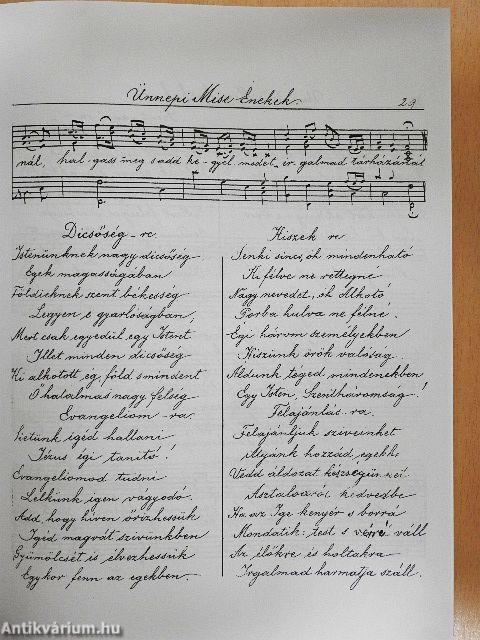 Ünnepi Mise Énekek. 29
nál, hallgass meg s add kegyelmedet, irgalmad tárházánál
Dicsőség-re.
Istenünknek nagy dicsőség
Egek magasságában
Földieknek szent békesség
Legyen e gyarlóságban,
Mert csak egyedül egy Istent
Illet minden dicsőség
Ki alkotott ég, föld s mindent
Ő hatalmas nagy felség
Evangeliom-ra.
Sietünk igéd hallani
Jézus égi tanító!
Evangeliomod tudni
Lelkünk igen vágyódó.
Add, hogy híven őrizhessük
Igéd magvát szivünkben
Gyümölcsét is élvezhessük
Egykor fenn az egekben.
Hiszek re
Senki sincs, óh mindenható
Ki félve ne rettegné
Nagy nevedet, óh Alkotó
Porba hulva ne félne.
Égi három személyekben
Hiszünk örök valóság.
Áldunk téged mindenekben
Egy Isten, Szentháromság!
Felajánlás-ra.
Felajánljuk sziveinket
Atyánk hozzád, egekbe
Vedd áldozat készségün
kedvedbe
Ha az Ige kenyér s borra
Mondatik: test s vérré váll
Az élőkre is holtakra
Irgalmad harmatja száll.
Antikvárium.hu